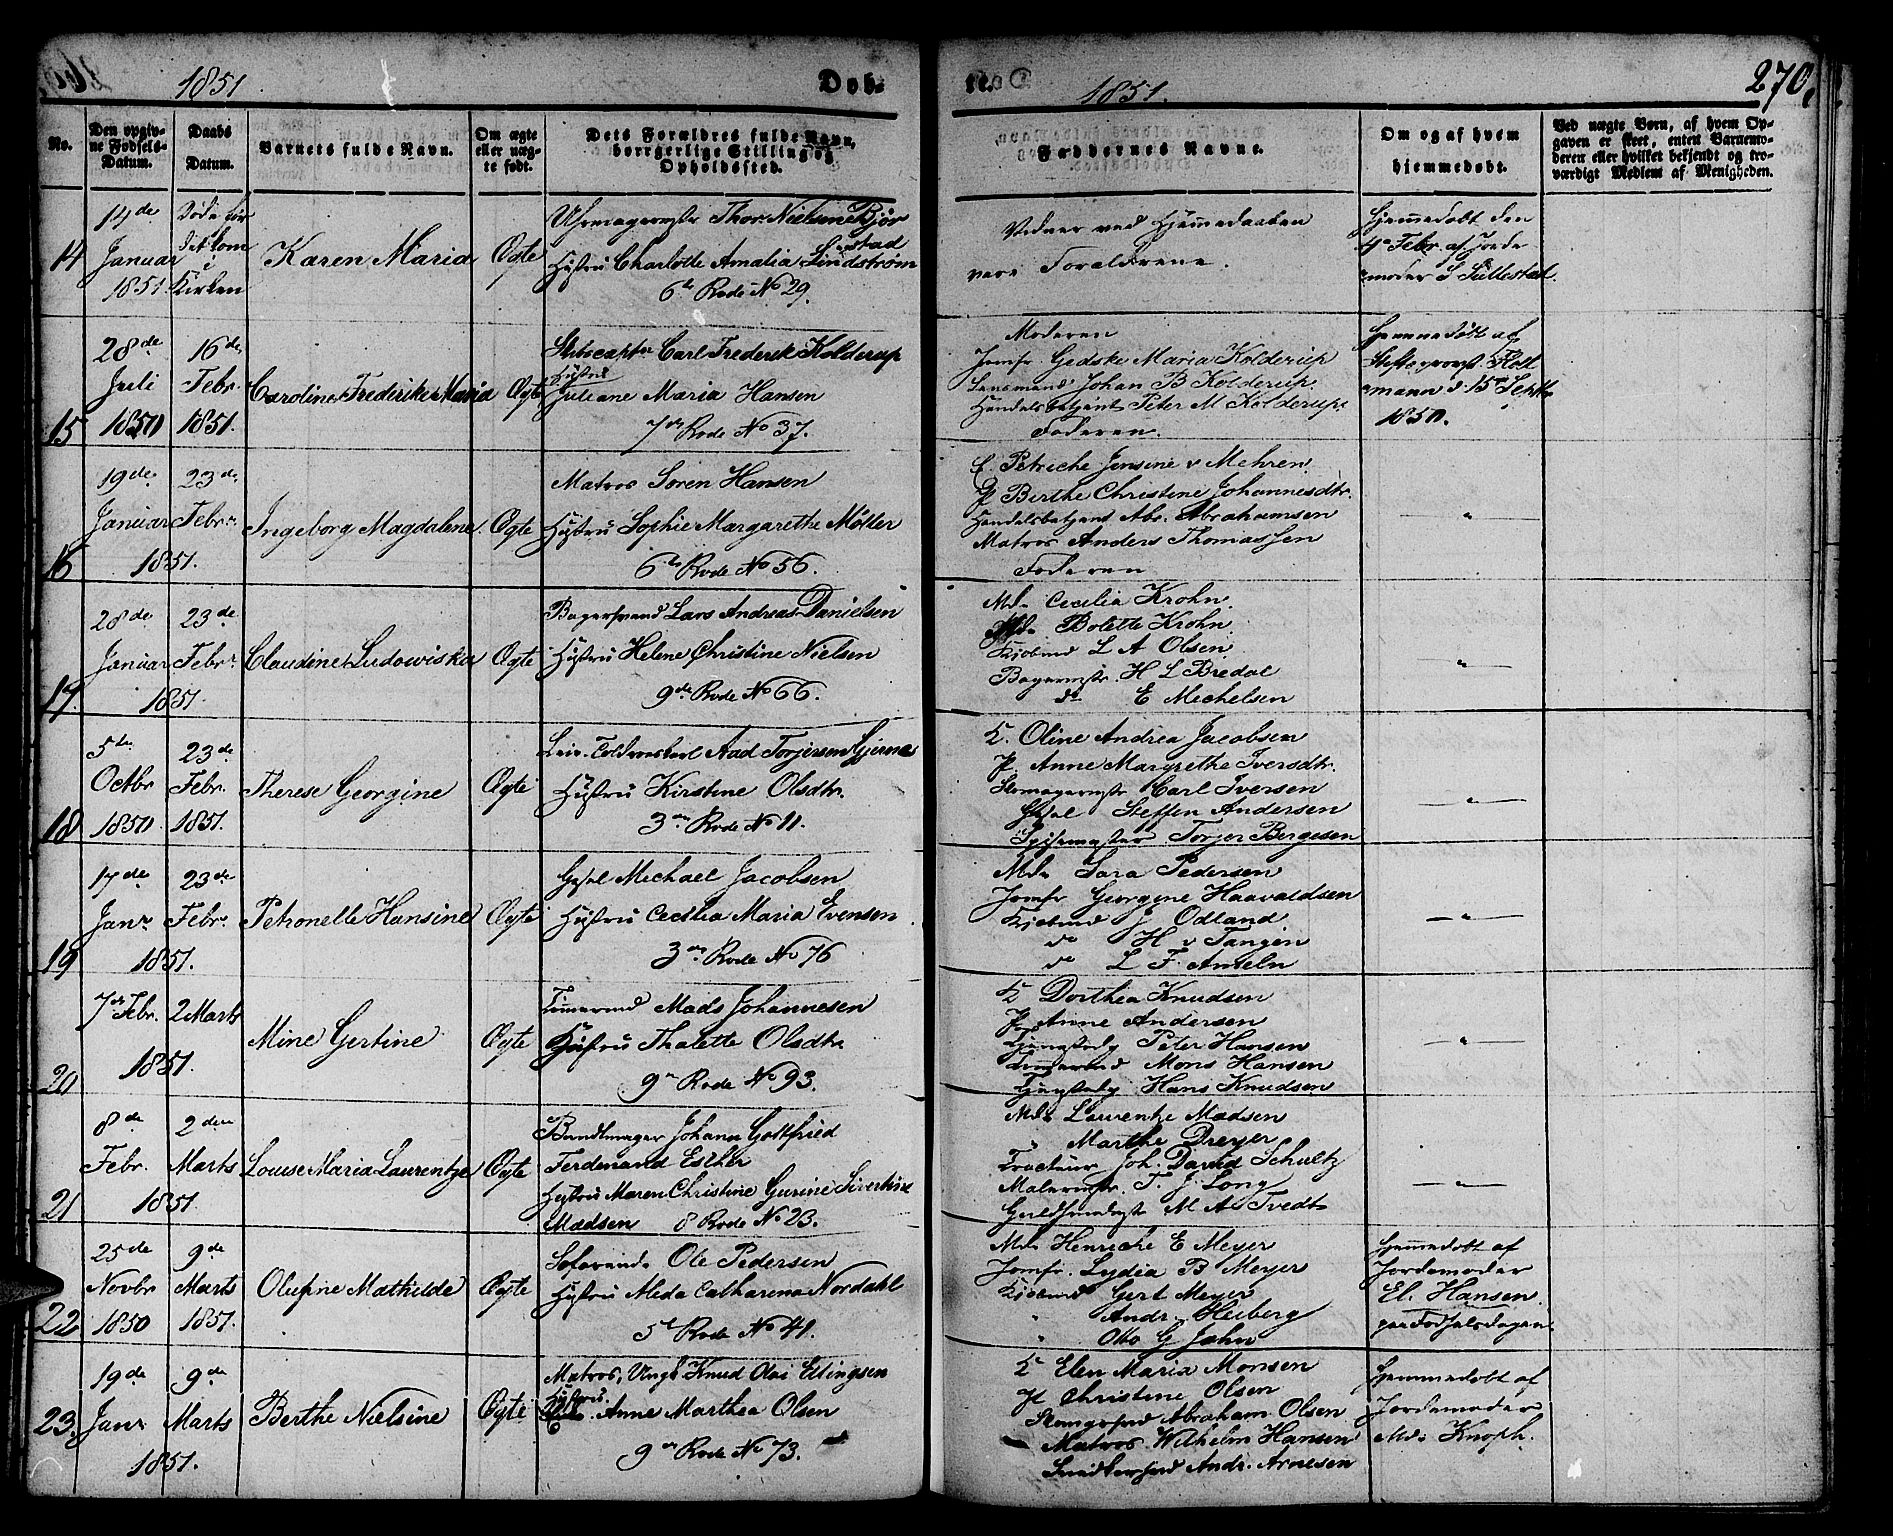 1851 Døb-
te. 1851. 270.
No.
Den opgiv-
ne Fødsels-
Datum.
Daabs
Datum.
Barnets fulde Navn.
Om ægte
eller uæg-
te født.
Dets Forældres fulde Navn,
borgerlige Stilling og
Opholdssted.
Faddernes Navne.
Om og af hvem
hjemmedøbt.
Ved uægte Børn, af hvem Op-
gaven er skeet, enten Barnemo-
deren eller hvilket bekjendt og tro-
værdigt Medlem af Menigheden.
14
14de
Januar
1851.
Døde før
det kom
i
Kirken
Karen Maria
Ægte
Uhrmagermstr Thor Nielsen Bjør
nstad
Hustru Charlotte Amalia Lindstrøm
6te Rode No 29.
Vidner ved Hjemmedaaben
vare Forældrene.
Hjemmedøbt den
4de Febr. af Jorde
moder S Sellestad.
15
28de
Juli
1850
16de
Febr.
1851.
Caroline Frederikke Maria
Ægte
Skibscaptn Carl Frederik Kolderup
Hustru
Juliane Maria Hansen
7de Rode No 37.
Moderen
Jomfr. Gedske Maria Kolderup
Lensmand Johan B Kolderup
Handelsbetjent Peter M Kolderup.
Faderen.
Hjemmedøbt af
Stiftsprovst Kolt
mann d. 15de Septbr
1850.
16
19de
Januar
23de
Febr.
1851.
Ingeborg Magdalene.
Ægte
Matros Søren Hansen
Hustru Sophie Margarethe Møller
6te Rode No 56.
K. Petriche Jensine v Mehren.
P Berthe Christine Johannesdtr.
Handelsbetjent Abr. Abrahamsen
Matros Anders Thomassen
Faderen
— " —
17.
28de
Januar
23de
Febr.
1851.
Claudine Ludowiska
Ægte
Bagersvend Lars Andreas Danielsen
Hustru Helene Christine Nielsen
9de Rode No 66.
Md. Cecilia Krohn.
Md. Bolette Krohn.
Kjøbmd L A Olsen.
Bagermstr. H L Bredal
do E Michelsen
— " —
18
5te
Octbr
1850
23de
Febr.
1851.
Therese Georgine
Ægte
Aad Torjersen Gjernes
Hustru Kirstine Olsdtr.
3die Rode No 11.
K. Oline Andrea Jacobsen
P. Anne Margrethe Iversdtr.
Skomagermstr Carl Iversen
Gesel Steffen Andersen
Torjer Bergesen
— " —
19
17de
Janr.
23de
Febr.
1851.
Petronelle Hansine
Ægte
Gesel Michael Jacobsen
Hustru Cecilia Maria Evensen
3die Rode No 76
Md. Sara Pedersen
Jomfr Georgine Haavaldsen
Kjøbmd J. Odland
do H v Tangen
do L F. Anteln
— " —
20
7de Febr.
2 Marts
1851.
Mine Gertine
Ægte
Tømmermd Mads Johannesen
Hustru Thalette Olsdtr
9de Rode No 93.
K Dorthea Knudsen
P. Anne Andersen
Peter Hansen
Tømmermd Mons Hansen
Hans Knudsen
— " —
21
8de
Febr.
2den
Marts
1851.
Louise Maria Laurentze
Ægte
Bundtmager Johann Gottfried
Ferdenand Esther
Hustru Maren Christine Gurine Sivertine
Madsen 8 Rode No 23.
Md. Laurentze Madsen
" Marthe Dreyer
Tracteur Joh. David Schultz
Malermstr. T. J. Long
Guldsmedmstr M A Tvedt
— " —
22
25de
Novbr
1850
9de
Marts
1851.
Olufine Mathilde
Ægte
Søfarende Ole Pedersen
Hustru Alida Catharena Nordahl
5te Rode No 41.
Md. Henriche E Meyer
Jomfr. Lydia B Meyer
Kjøbmd Gert Meyer
" Andr. Heiberg
" Otto G Jahn
Hjemmedøbt af
Jordemoder
El. Hansen
paa Fødselsdagen.
23.
19de
Janr
9de
Marts
1851.
Berthe Nielsine
Ægte
Matros, Ungk Knud Olai Ellingsen
Hustru
Anne Marthea Olsen
9de Rode No 73.
K Elen Maria Monsen
P Christine Olsen
Abraham Olsen
Matros Wilhelm Hansen
Andr. Arnesen
Hjemmedøbt af
Jordemoder
Md. Knoph.